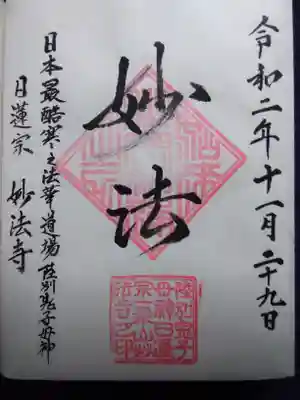 令和二年十一月二十九日
妙法
日本最酷寒之法華道場 陸別鬼子母神
日蓮宗 妙法寺